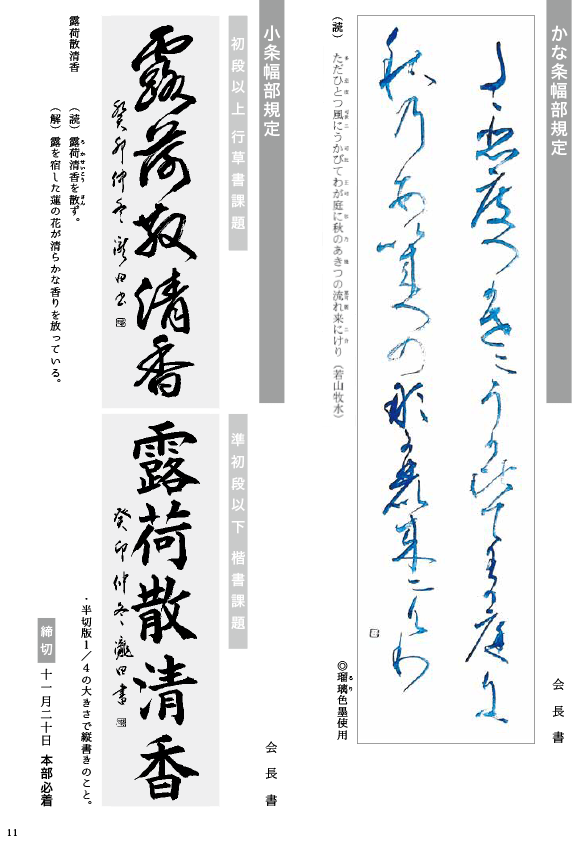 かな条幅部規定
会長書
(読) ただひとつ風にうかびてわが庭に秋のあきつの流れ来にけり (若山牧水)
◎瑠璃色墨使用
小条幅部規定
会長書
初段以上 行草書課題
露荷散清香
癸卯仲冬 瀧田書
準初段以下 楷書課題
露荷散清香
癸卯仲冬 瀧田書
・半切版1/4の大きさで縦書きのこと。
露荷散清香
(読) 露荷清香を散ず。
(解) 露を宿した蓮の花が清らかな香りを放っている。
締切 十一月二十日 本部必着
11